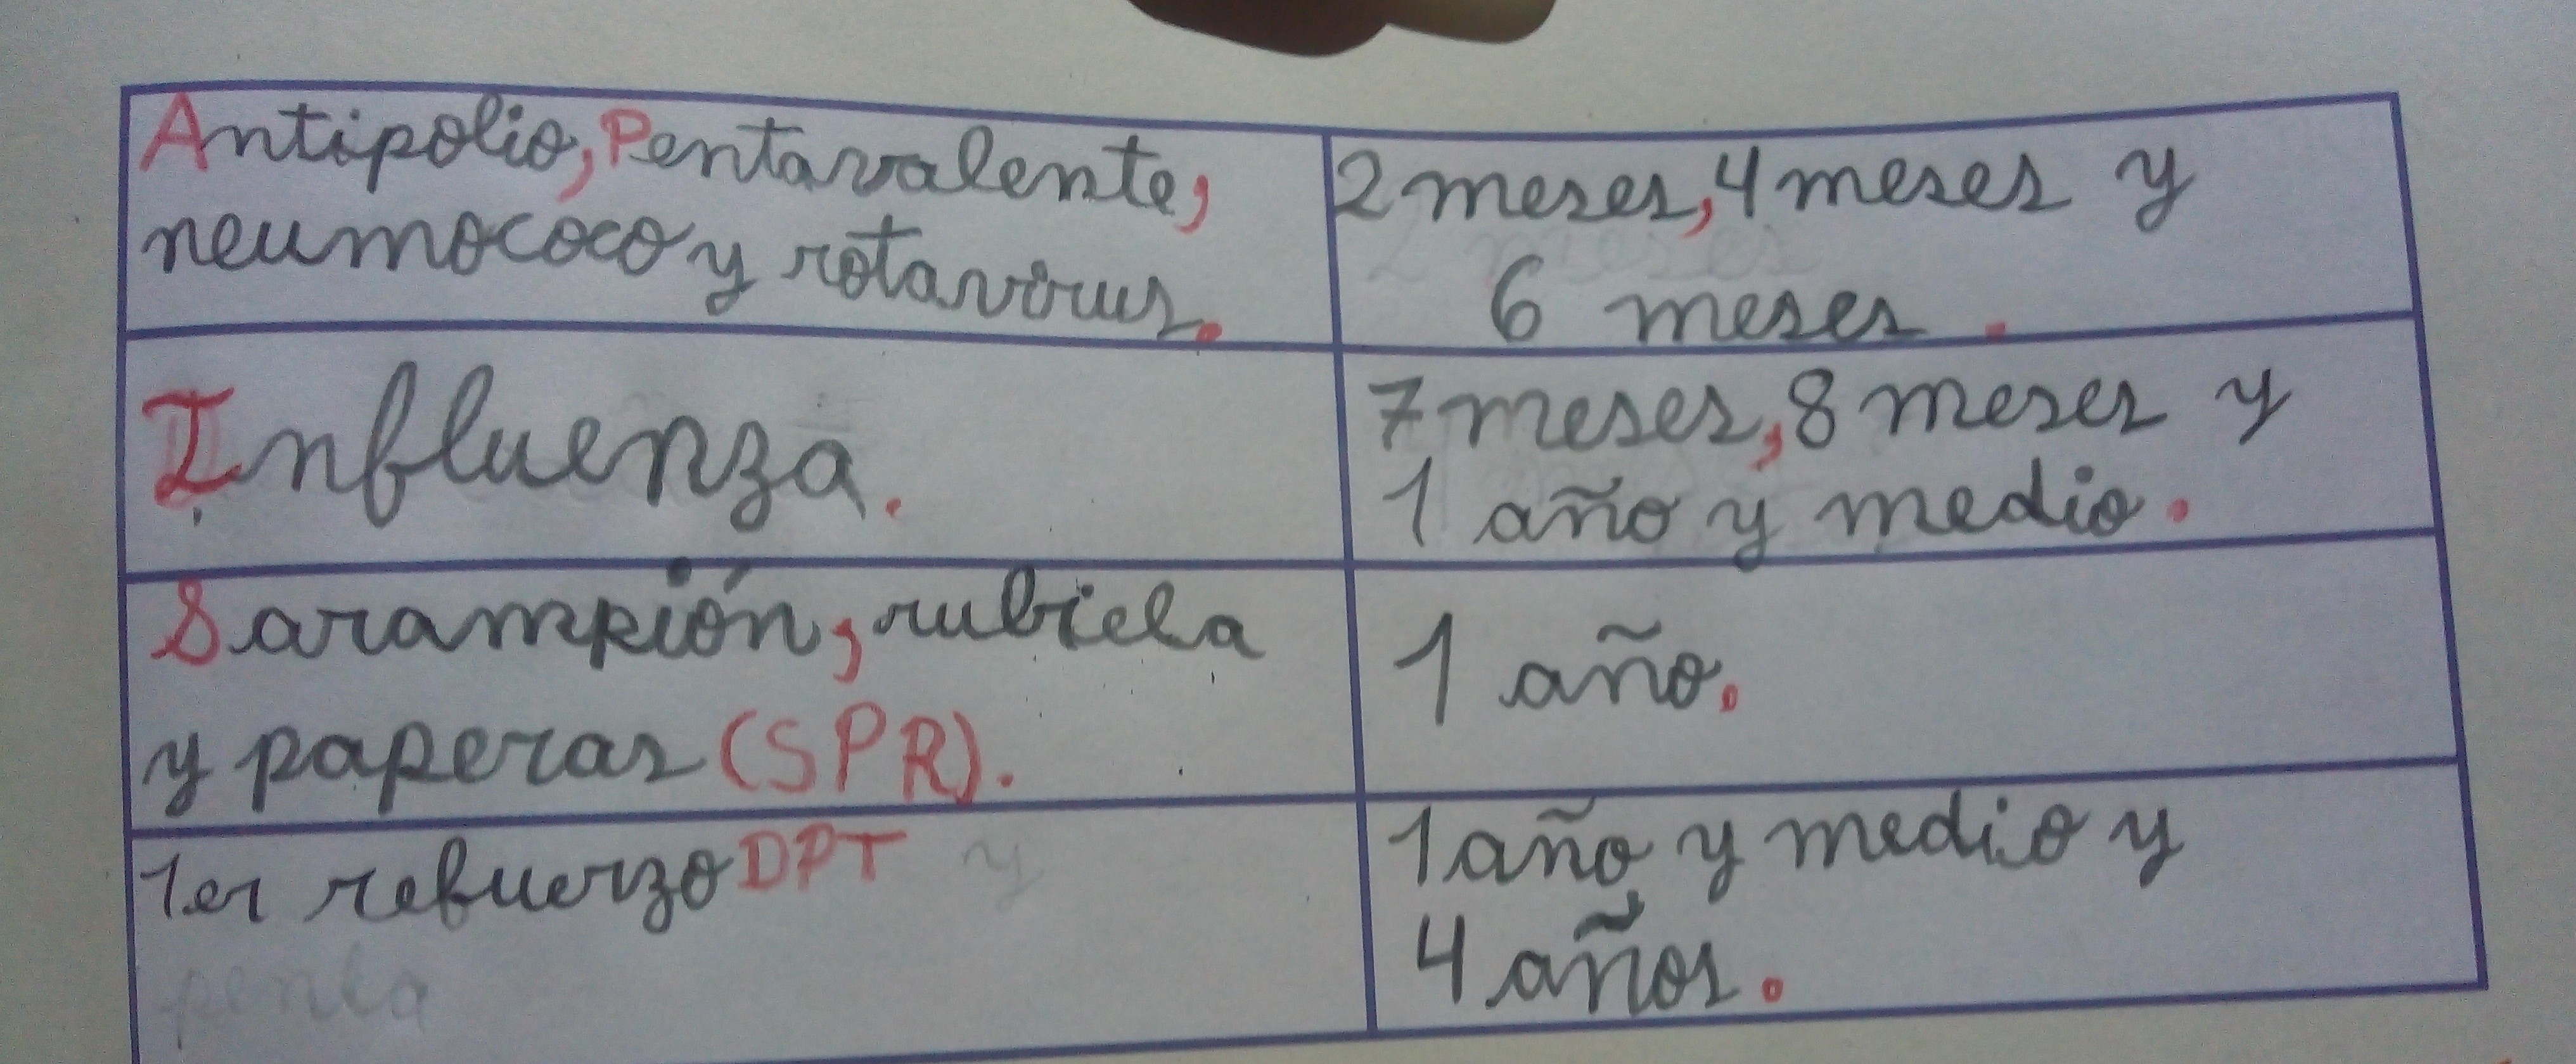 Antipolio, Pentavalente,
neumococo y rotavirus.
2 meses, 4 meses y
6 meses.
Influenza.
7 meses, 8 meses y
1 año y medio.
Sarampión, rubiela
y paperas (SPR).
1 año.
1er refuerzo DPT y
penta
1 año y medio y
4 años.